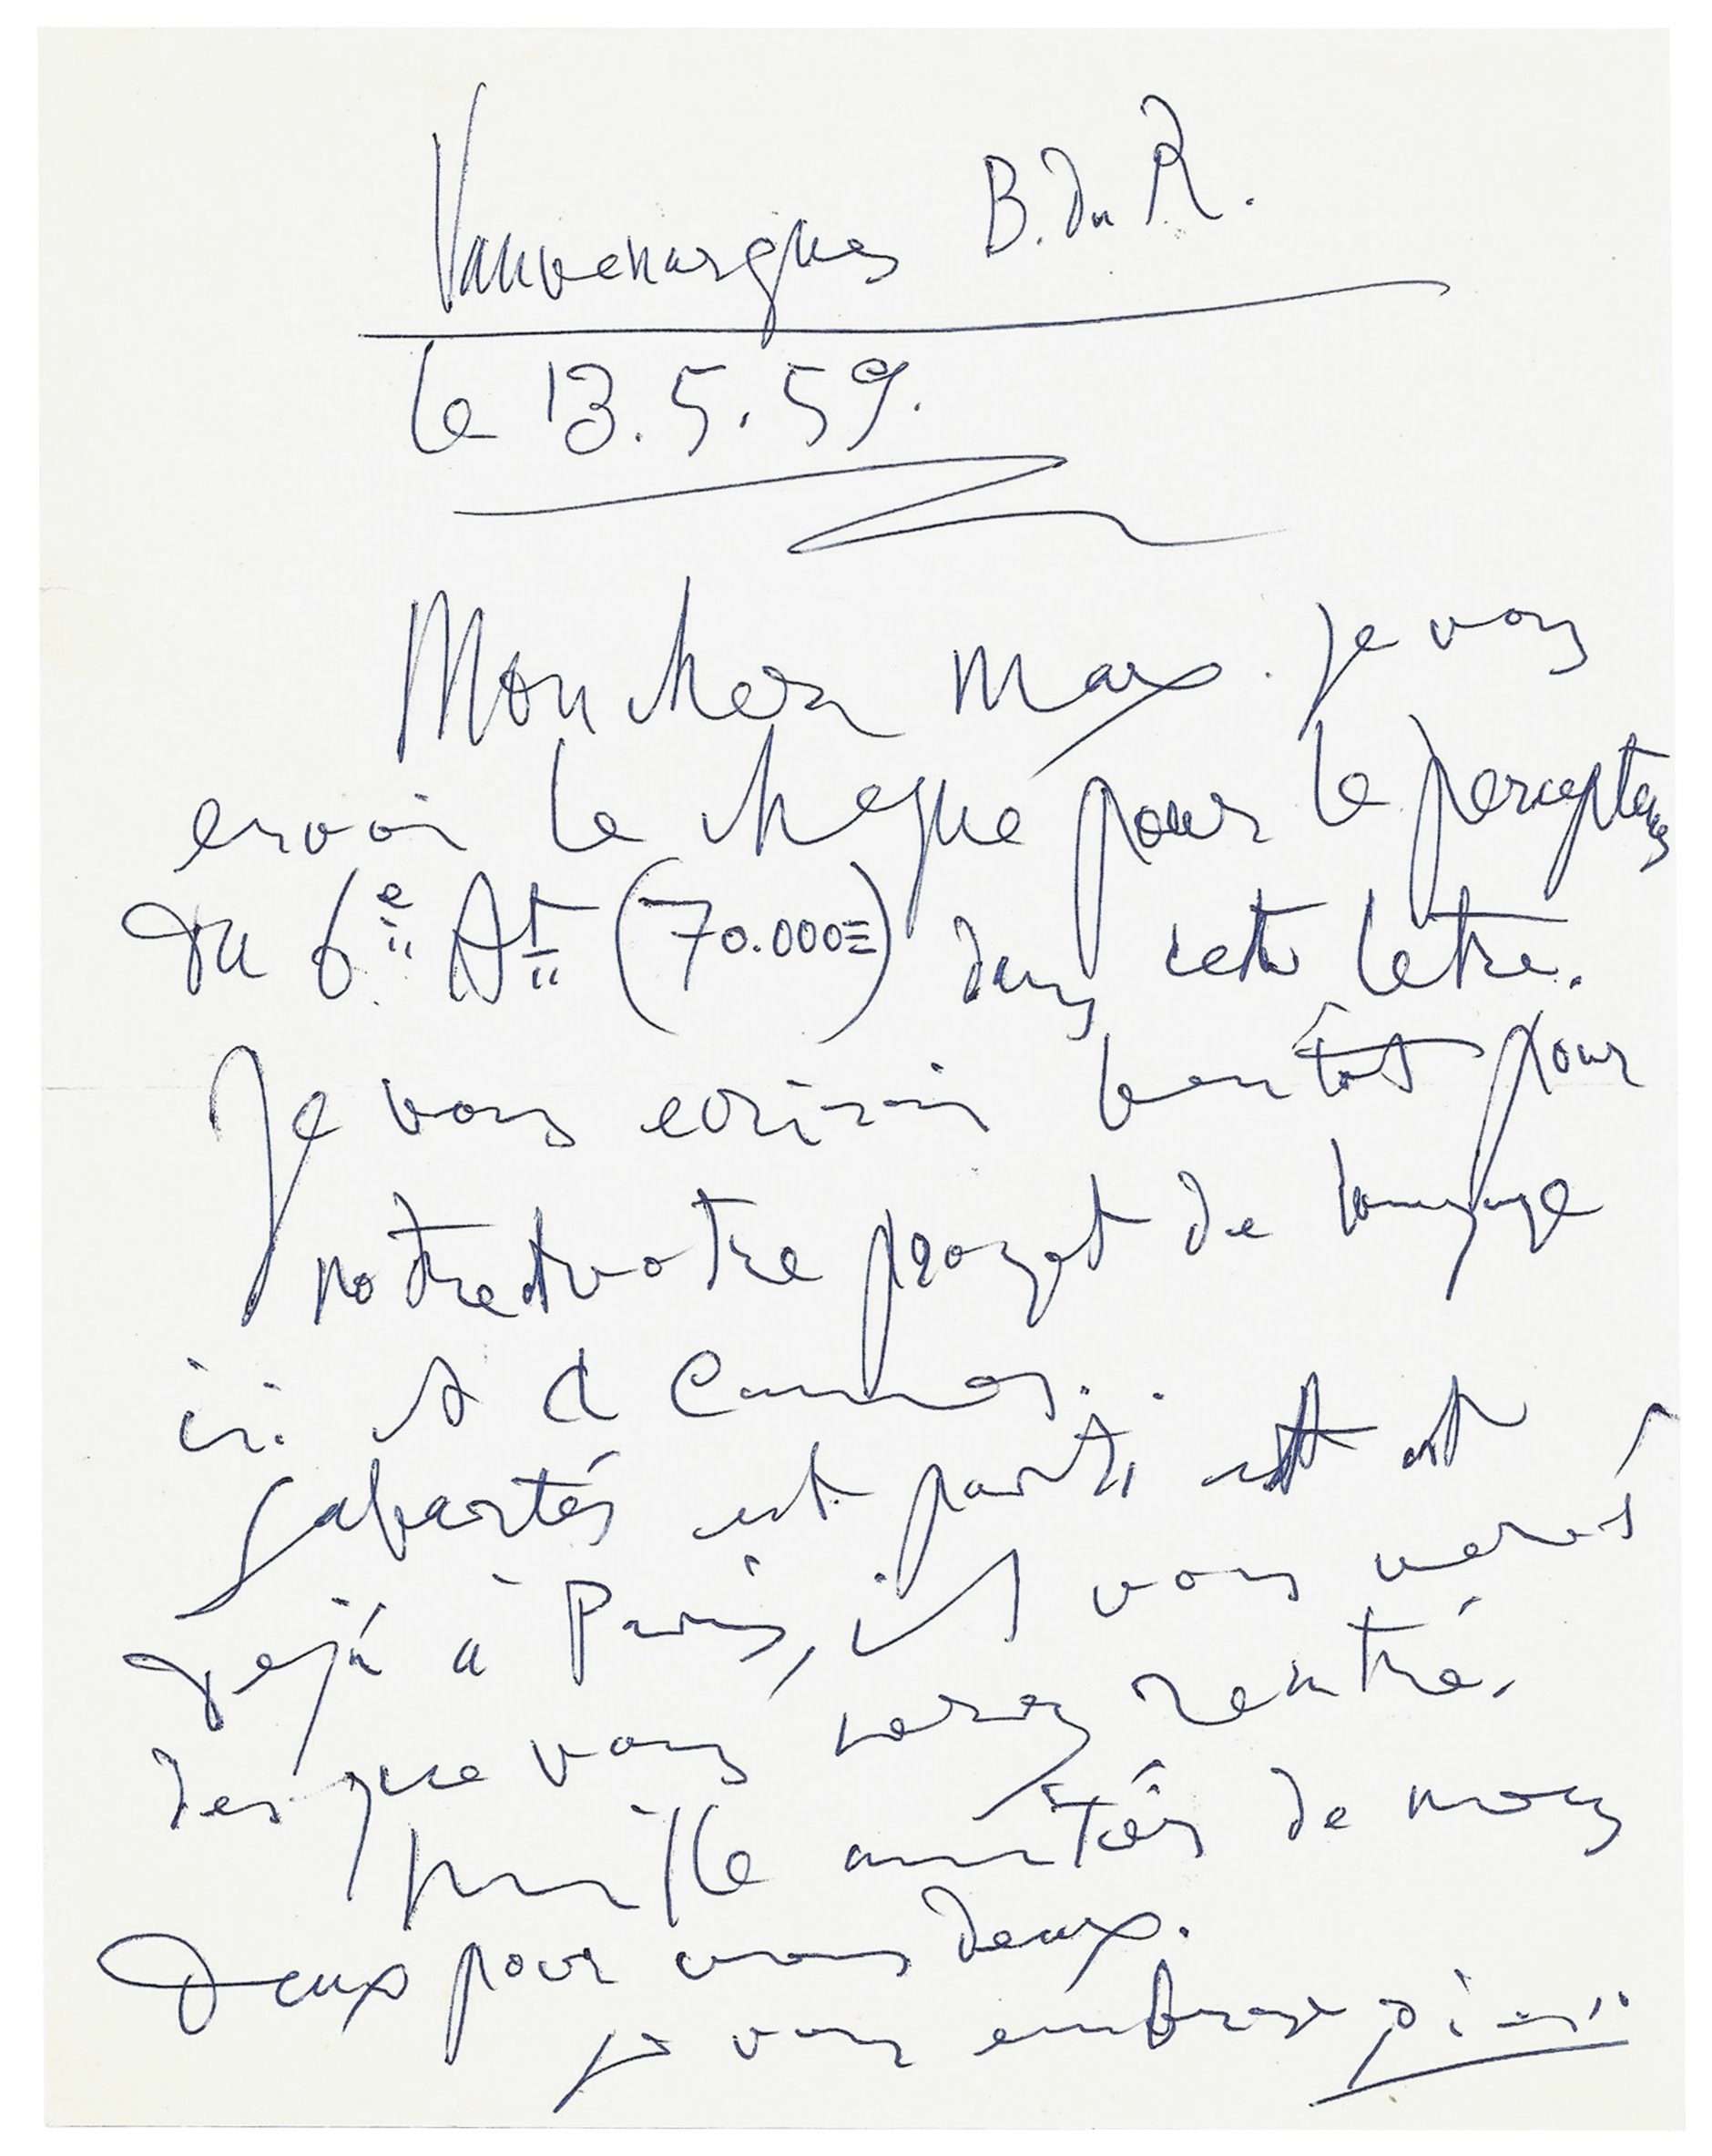 Vauvenargues B. du R.
le 13.5.59.
Mon cher Max. Je vous
envoi le cheque pour le percepteur
du 6e At (70.000=) dans cette letre.
Je vous ecrirai bientôt pour
notre et votre projet de
ici et a Cannes.
Sabartés est parti est
dejà à Paris, il vous
des que vous serez rentré.
mille amitiés de nous
deux pour vous deux.
je vous embrasse